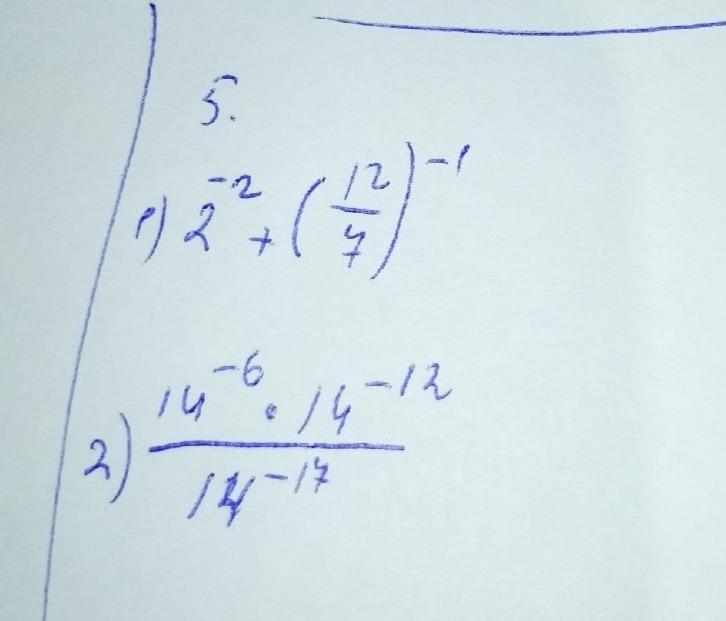 5.
1) 2⁻² + (12/7)⁻¹
2) 14⁻⁶ · 14⁻¹² / 14⁻¹⁷